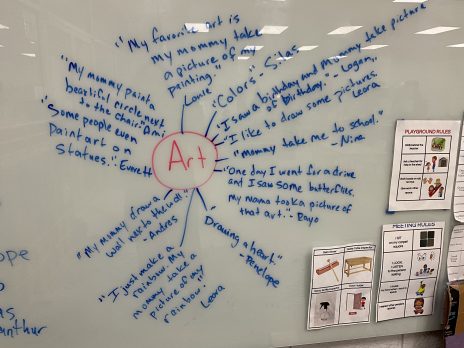 "My favorite art is
my mommy take
a picture of my
painting."
Lanie
"Colors" - Silas
"I saw a birthday and Mommy take picture
of birthday." - Logan
"I like to draw some pictures.
Leora
"mommy take me to school."
- Nina
"One day I went for a drive
and I saw some butterflies.
my mama took a picture of
that art." - Bayo
"Drawing a heart"
- Penelope
"I just make a
rainbow. My
mommy take a
picture of my
rainbow.
Leora
"My mommy draw a
wall next to the wall."
- Andres
"Some people even
Paint art on
statues." - Everett
"My mommy paint a
beautiful circle next
to the chair." Ami
Art
PLAYGROUND RULES
MEETING RULES
ope
anthur